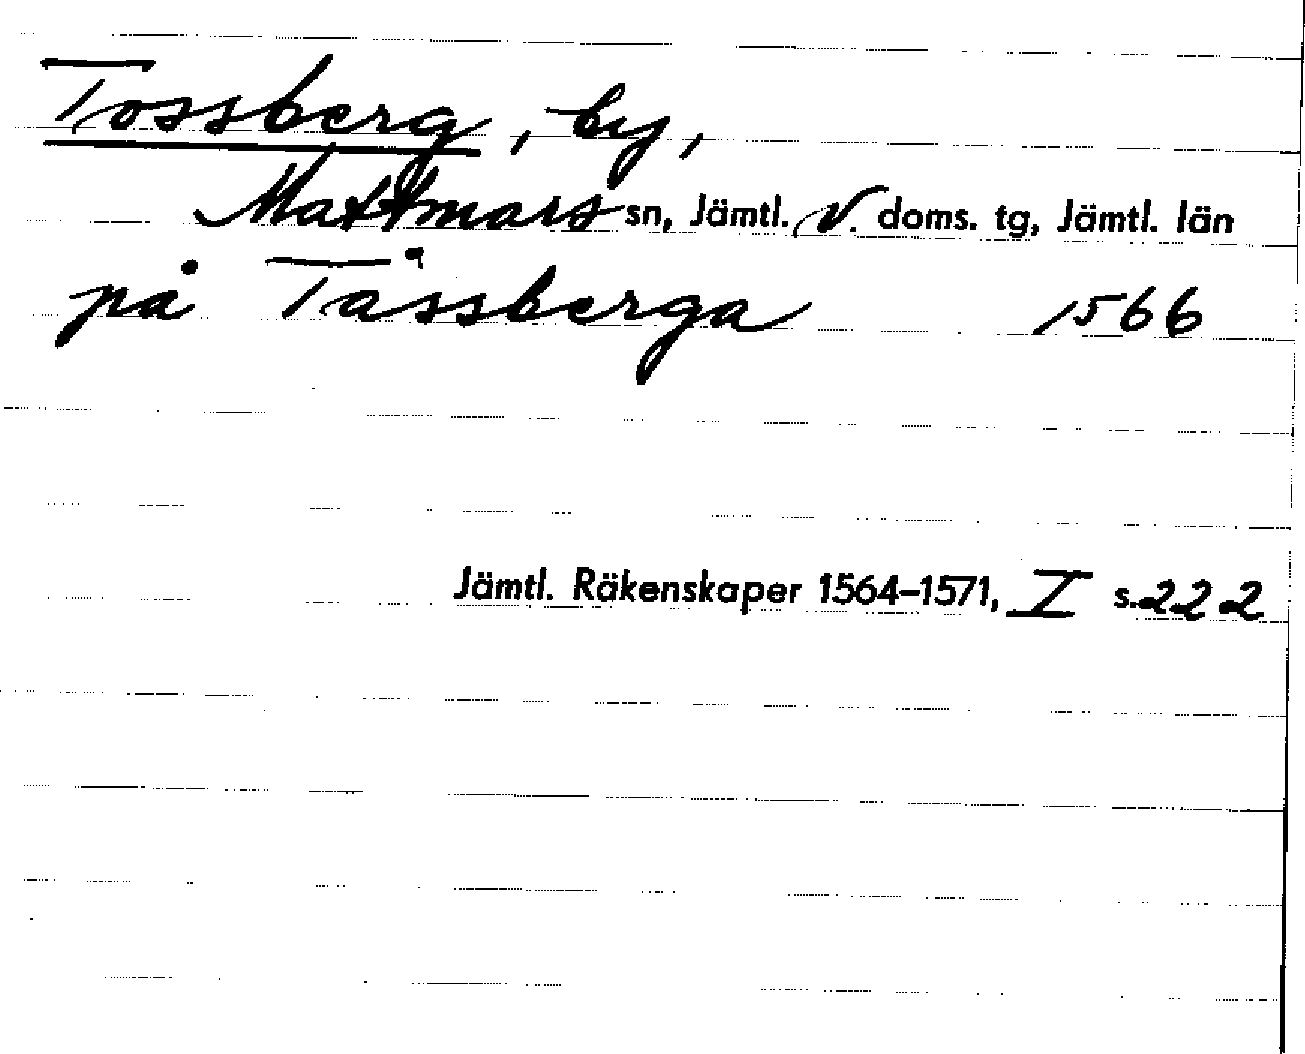 Tossberg, by,
Mattmars sn, Jämtl. V. doms. tg, Jämtl. län
på Tåssberga 1566
Jämtl. Räkenskaper 1564–1571, I s. 222